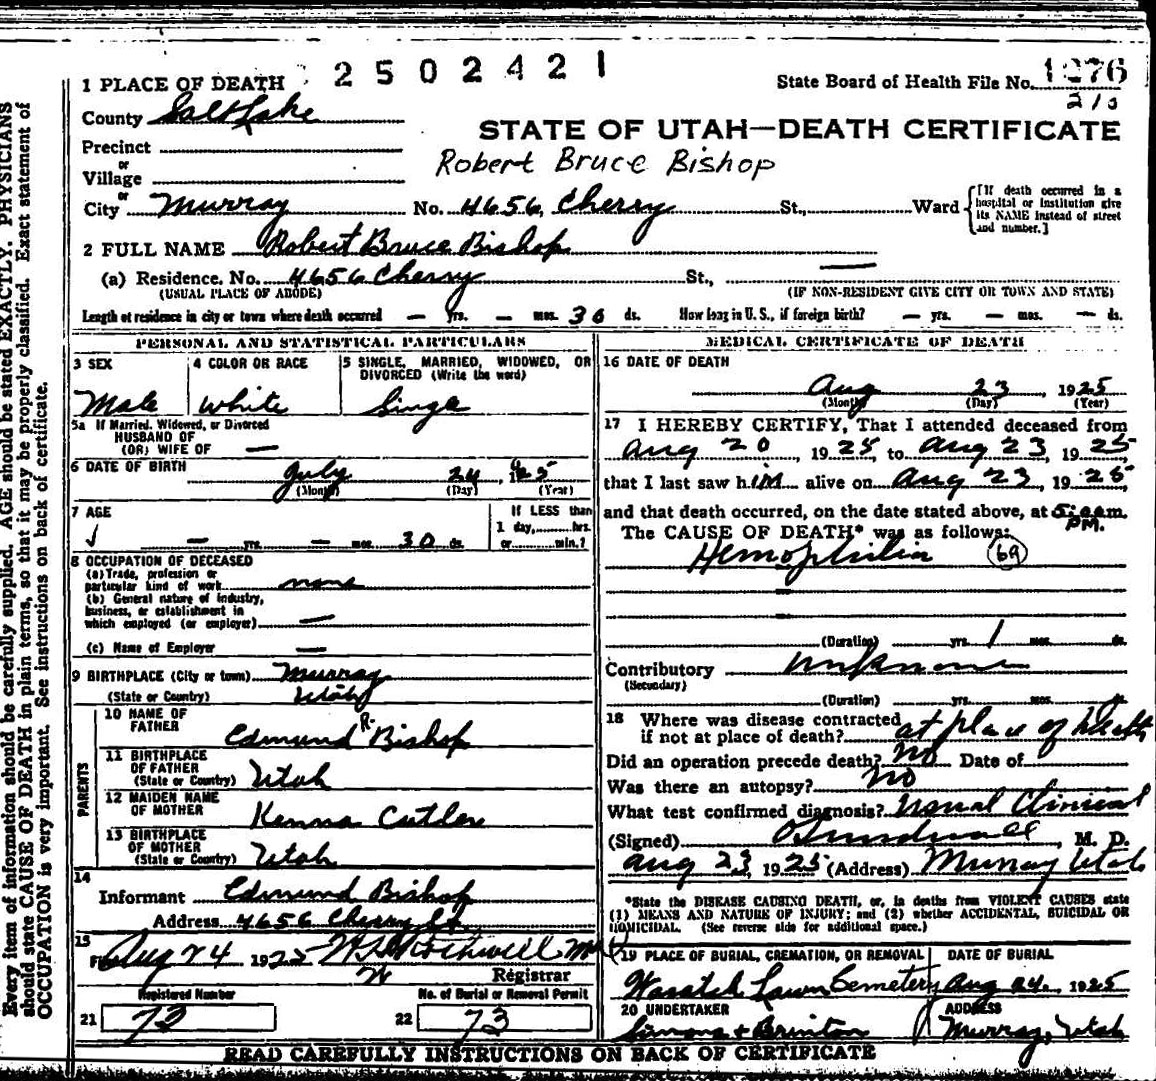 2502421
1 PLACE OF DEATH
State Board of Health File No. 1276
210
County Salt Lake
STATE OF UTAH—DEATH CERTIFICATE
Precinct
Robert Bruce Bishop
or
Village
or
City Murray No. 4656 Cherry St., Ward
[If death occurred in a hospital or institution give its NAME instead of street and number.]
2 FULL NAME Robert Bruce Bishop
(a) Residence. No. 4656 Cherry St.,
(USUAL PLACE OF ABODE) (IF NON-RESIDENT GIVE CITY OR TOWN AND STATE)
Length of residence in city or town where death occurred — yrs. — mos. 30 ds. How long in U. S., if foreign birth? — yrs. — mos. — ds.
PERSONAL AND STATISTICAL PARTICULARS
3 SEX
Male
4 COLOR OR RACE
White
5 SINGLE, MARRIED, WIDOWED, OR
DIVORCED (Write the word)
Singe
5a If Married, Widowed, or Divorced
HUSBAND OF
(OR) WIFE OF —
6 DATE OF BIRTH
July 24, 1925
(Month) (Day) (Year)
7 AGE
— yrs. — mos. 30 ds.
If LESS than
1 day, hrs.
or min.?
8 OCCUPATION OF DECEASED
(a) Trade, profession or
particular kind of work none
(b) General nature of industry,
business, or establishment in
which employed (or employer) —
(c) Name of Employer —
9 BIRTHPLACE (City or town) Murray
(State or Country) Utah
PARENTS
10 NAME OF
FATHER
Edmund R. Bishop
11 BIRTHPLACE
OF FATHER
(State or Country) Utah
12 MAIDEN NAME
OF MOTHER
Kenna Cutler
13 BIRTHPLACE
OF MOTHER
(State or Country) Utah
14
Informant Edmund Bishop
Address 4656 Cherry St.
15
Aug 24 1925 Rockwell
Registrar
Registered Number
21 73
No. of Burial or Removal Permit
22 73
MEDICAL CERTIFICATE OF DEATH
16 DATE OF DEATH
Aug 23 1925
(Month) (Day) (Year)
17 I HEREBY CERTIFY, That I attended deceased from
Aug 20, 1925, to Aug 23, 1925
that I last saw him alive on Aug 23, 1925,
and that death occurred, on the date stated above, at 5:00 m.
PM.
The CAUSE OF DEATH* was as follows:
Hemophilia 69
(Duration) yrs. 1 mos. ds.
Contributory unknown
(Secondary)
(Duration) yrs. mos. ds.
18 Where was disease contracted
if not at place of death? at place of death
Did an operation precede death? No Date of
Was there an autopsy? No
What test confirmed diagnosis? Usual Clinical
(Signed) , M. D.
Aug 23, 1925 (Address) Murray Utah
*State the DISEASE CAUSING DEATH, or, in deaths from VIOLENT CAUSES state
(1) MEANS AND NATURE OF INJURY; and (2) whether ACCIDENTAL, SUICIDAL OR
HOMICIDAL. (See reverse side for additional space.)
19 PLACE OF BURIAL, CREMATION, OR REMOVAL
Wasatch Lawn Cemetery
DATE OF BURIAL
Aug 24. 1925
20 UNDERTAKER
Simons & Brinton
ADDRESS
Murray, Utah
READ CAREFULLY INSTRUCTIONS ON BACK OF CERTIFICATE
Every item of information should be carefully supplied. AGE should be stated EXACTLY. PHYSICIANS
should state CAUSE OF DEATH in plain terms, so that it may be properly classified. Exact statement of
OCCUPATION is very important. See instructions on back of certificate.